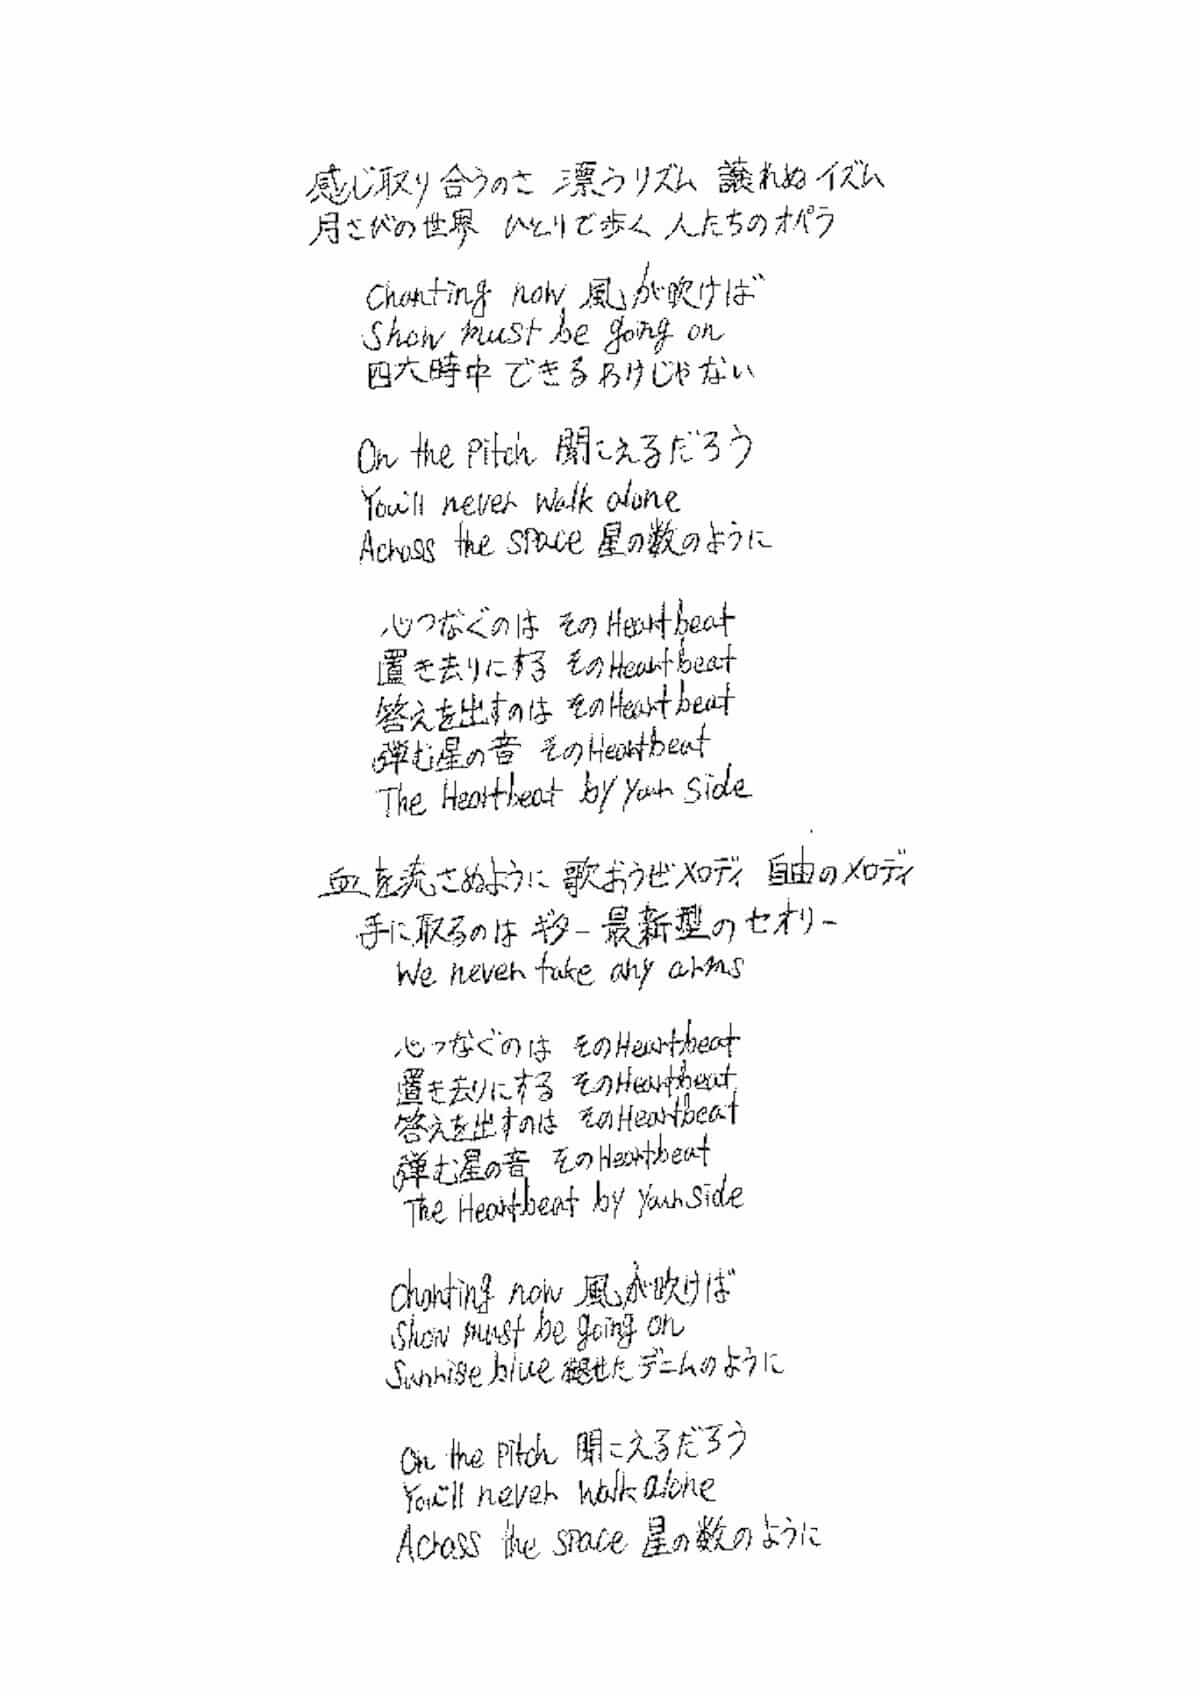 感じ取り合うのさ 漂うリズム 譲れぬイズム
月さびの世界 ひとりで歩く 人たちのオペラ
Chanting now 風が吹けば
Show must be going on
四六時中 できるわけじゃない
On the Pitch 聞こえるだろう
You'll never walk alone
Across the space 星の数のように
心つなぐのは そのHeartbeat
置き去りにする そのHeartbeat
答えを出すのは そのHeartbeat
弾む星の音 そのHeartbeat
The Heartbeat by your side
血を流さぬように 歌おうぜメロディ 自由のメロディ
手に取るのは ギター 最新型のセオリー
We never take any arms
心つなぐのは そのHeartbeat
置き去りにする そのHeartbeat
答えを出すのは そのHeartbeat
弾む星の音 そのHeartbeat
The Heartbeat by your side
Chanting now 風が吹けば
Show must be going on
Sunrise blue 褪せた デニムのように
On the Pitch 聞こえるだろう
You'll never walk alone
Across the space 星の数のように